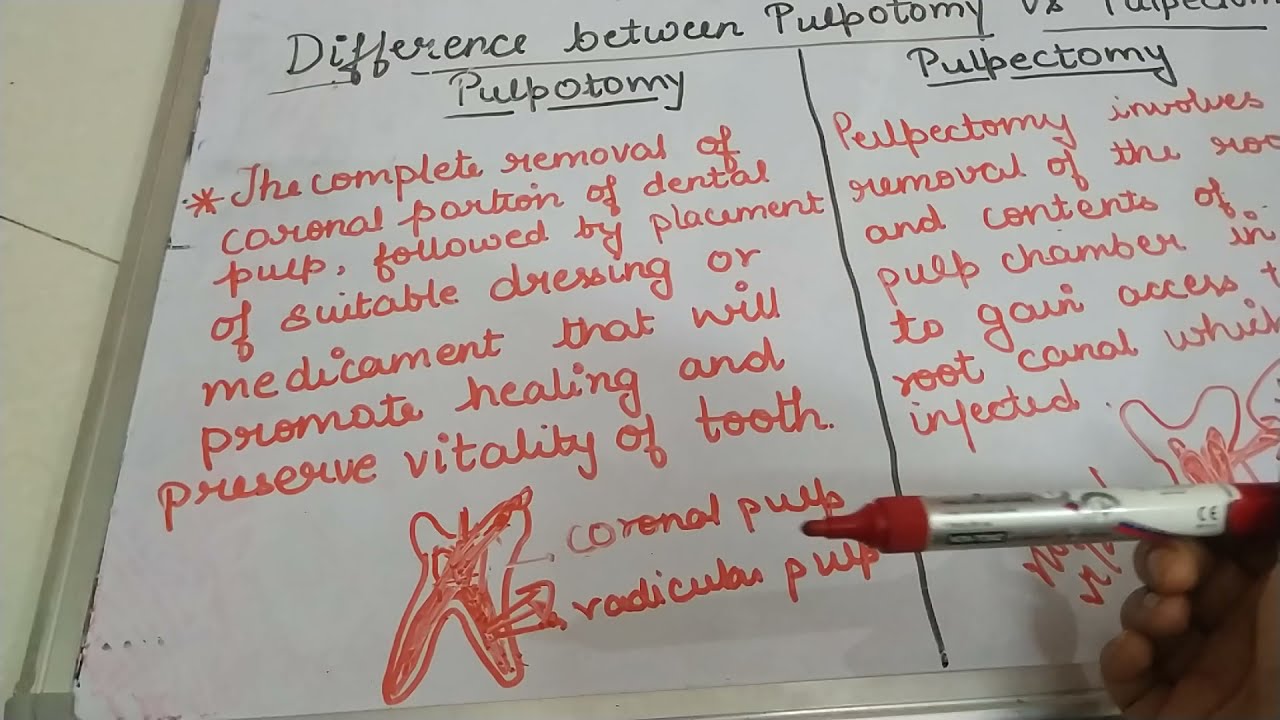 Difference between Pulpotomy vs Pulpectom
Pulpotomy
* The complete removal of
coronal portion of dental
pulp, followed by placement
of suitable dressing or
medicament that will
promote healing and
preserve vitality of tooth.
coronal pulp
radicular pulp
Pulpectomy
Pulpectomy involves
removal of the roo
and contents of
pulp chamber in
to gain access t
root canal which
infected.
CE